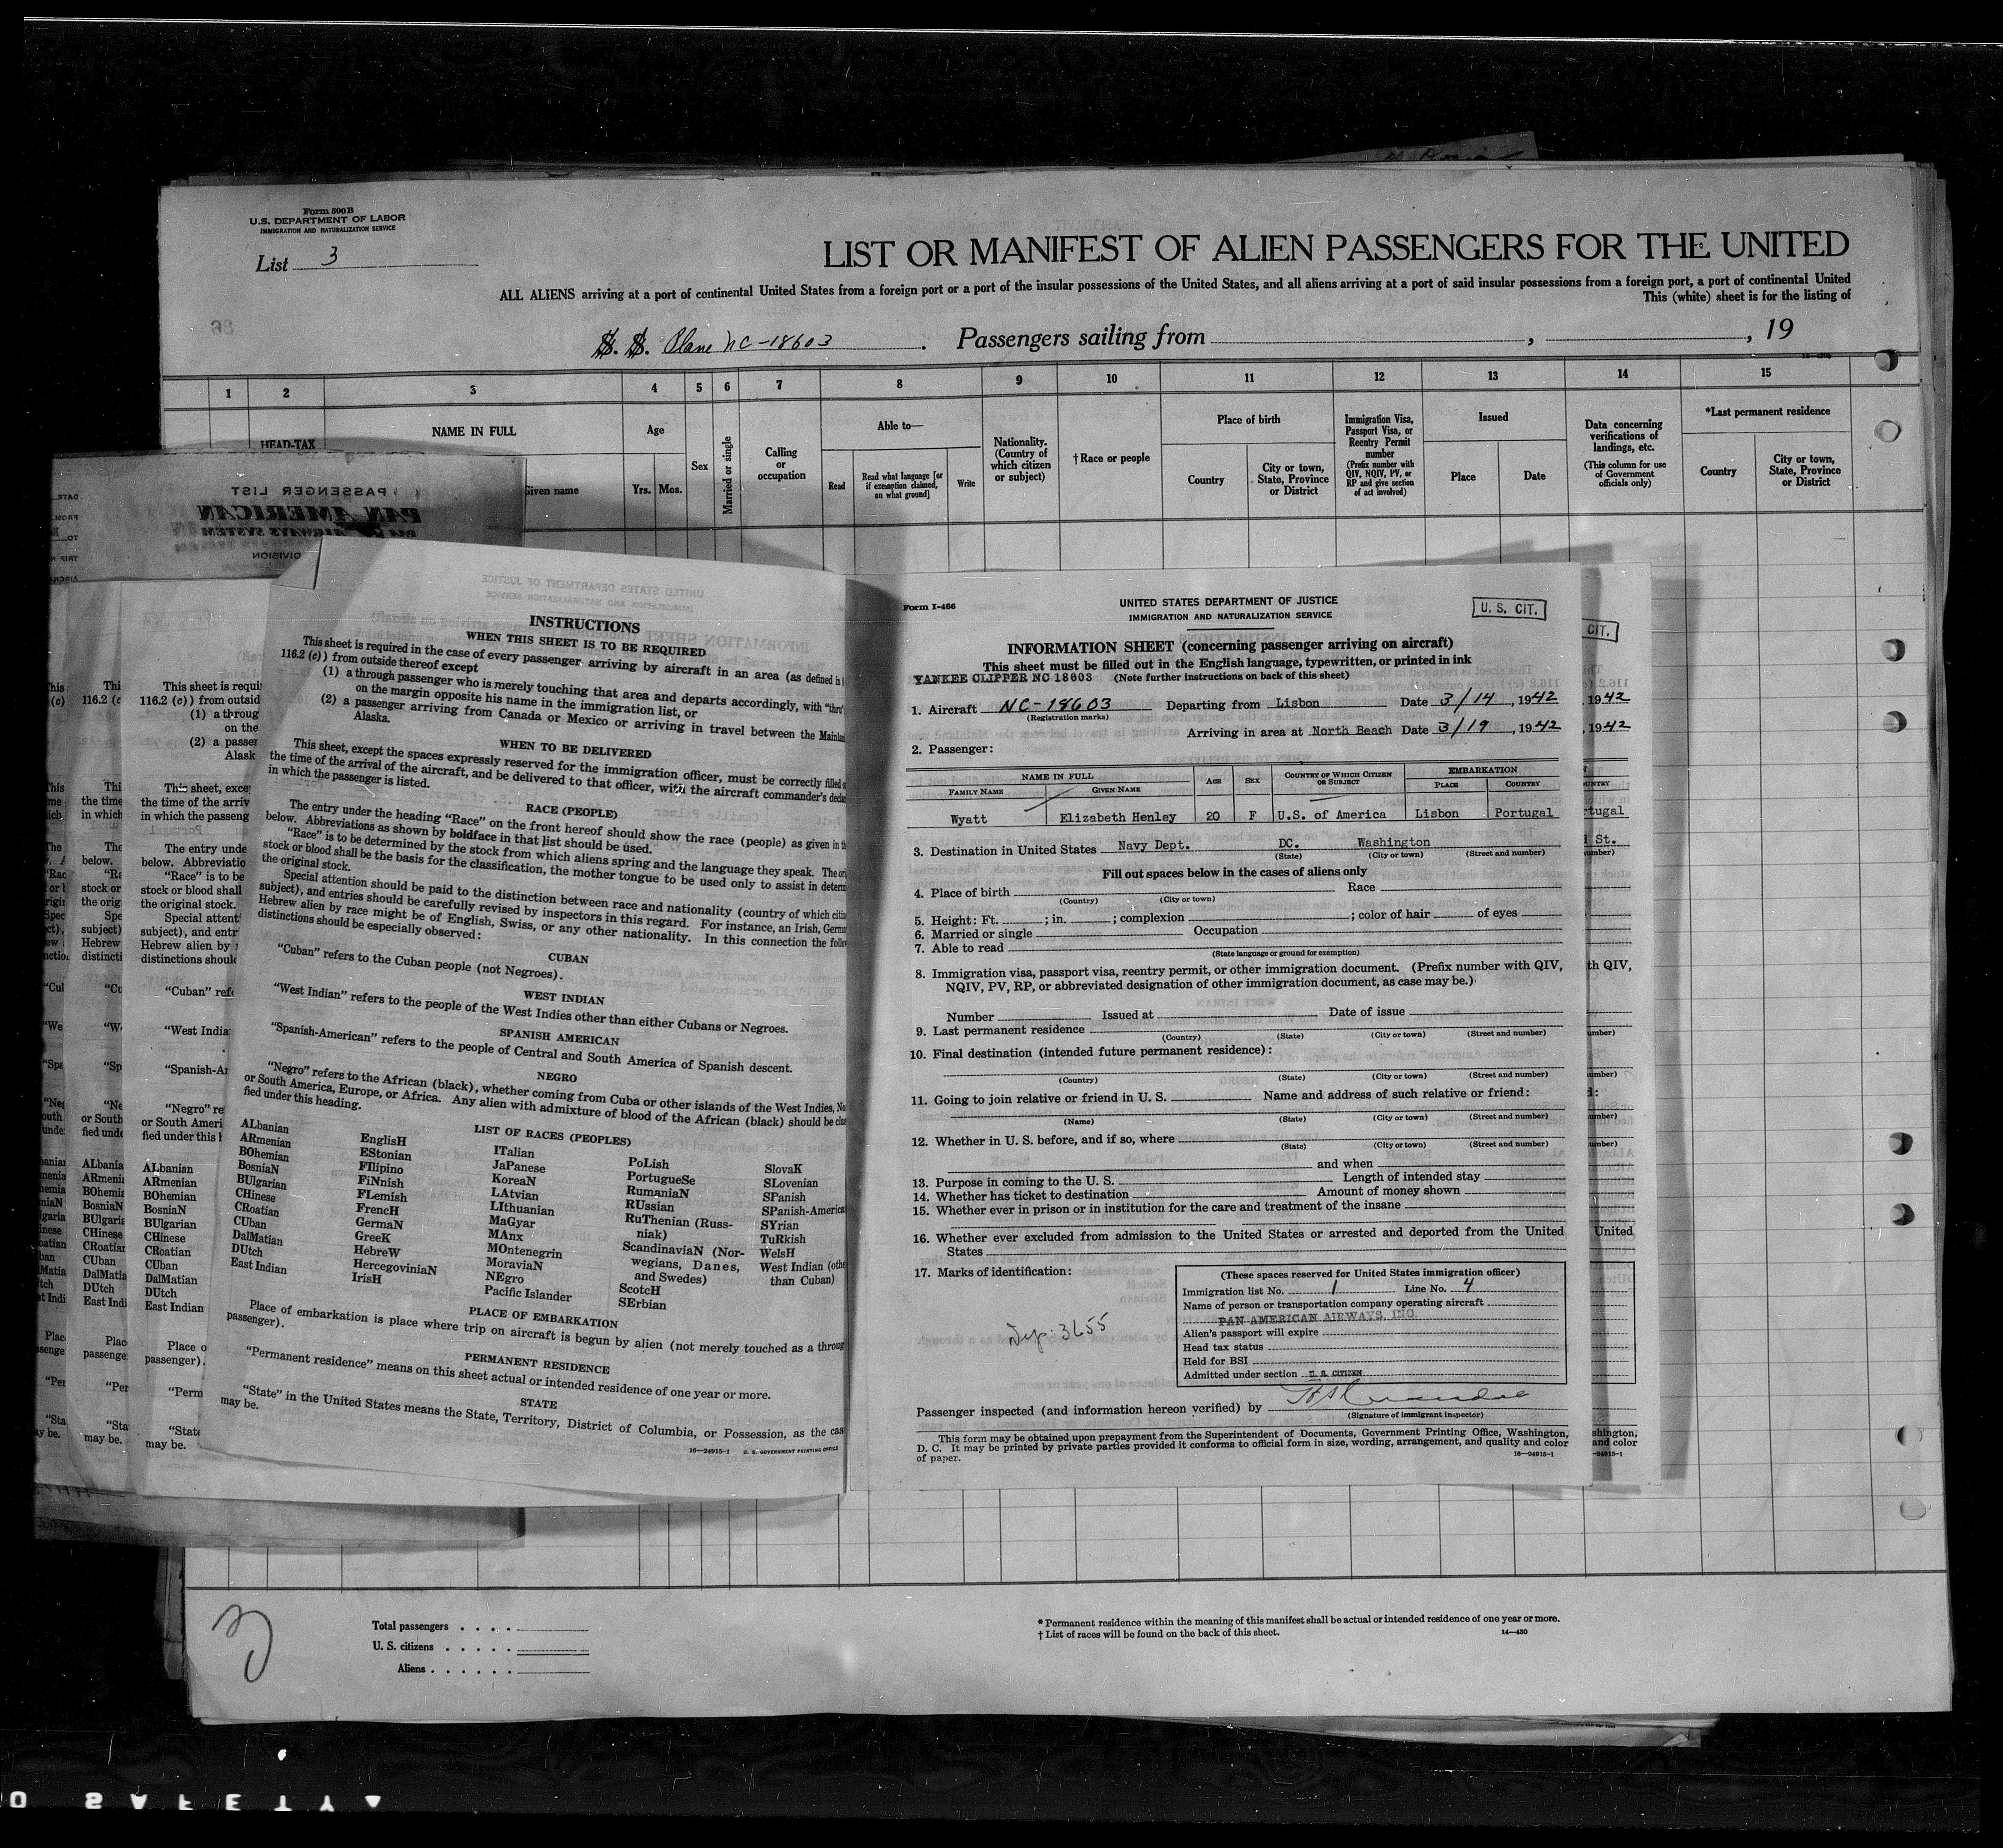 Form 500B
U.S. DEPARTMENT OF LABOR
IMMIGRATION AND NATURALIZATION SERVICE
List 3
LIST OR MANIFEST OF ALIEN PASSENGERS FOR THE UNITED
ALL ALIENS arriving at a port of continental United States from a foreign port or a port of the insular possessions of the United States, and all aliens arriving at a port of said insular possessions from a foreign port, a port of continental United
This (white) sheet is for the listing of
S. S. Plane NC-18603. Passengers sailing from , , 19
1 2 3 4 5 6 7 8 9 10 11 12 13 14 15
HEAD-TAX
NAME IN FULL
Given name
Age
Yrs. Mos.
Sex
Married or single
Calling or occupation
Able to—
Read
Read what language [or if exemption claimed, on what ground]
Write
Nationality. (Country of which citizen or subject)
†Race or people
Place of birth
Country
City or town, State, Province or District
Immigration Visa, Passport Visa, or Reentry Permit number
(Prefix number with QIV, NQIV, PV, or RP and give section of act involved)
Issued
Place
Date
Data concerning verifications of landings, etc.
(This column for use of Government officials only)
*Last permanent residence
Country
City or town, State, Province or District
PASSENGER LIST
PAN AMERICAN
AIRWAYS SYSTEM
DIVISION
INSTRUCTIONS
WHEN THIS SHEET IS TO BE REQUIRED
This sheet is required in the case of every passenger arriving by aircraft in an area (as defined in
116.2 (c)) from outside thereof except
(1) a through passenger who is merely touching that area and departs accordingly, with "thru"
on the margin opposite his name in the immigration list, or
(2) a passenger arriving from Canada or Mexico or arriving in travel between the
Alaska.
WHEN TO BE DELIVERED
This sheet, except the spaces expressly reserved for the immigration officer, must be correctly filled
the time of the arrival of the aircraft, and be delivered to that officer, with the aircraft commander's
in which the passenger is listed.
RACE (PEOPLE)
The entry under the heading "Race" on the front hereof should show the race (people) as given in
below. Abbreviations as shown by boldface in that list should be used.
"Race" is to be determined by the stock from which aliens spring and the language they speak. The
stock or blood shall be the basis for the classification, the mother tongue to be used only to assist in
the original stock.
Special attention should be paid to the distinction between race and nationality (country of which
subject), and entries should be carefully revised by inspectors in this regard. For instance, an Irish,
Hebrew alien by race might be of English, Swiss, or any other nationality. In this connection the
distinctions should be especially observed:
CUBAN
"Cuban" refers to the Cuban people (not Negroes).
WEST INDIAN
"West Indian" refers to the people of the West Indies other than either Cubans or Negroes.
SPANISH AMERICAN
"Spanish-American" refers to the people of Central and South America of Spanish descent.
NEGRO
"Negro" refers to the African (black), whether coming from Cuba or other islands of the West Indies,
or South America, Europe, or Africa. Any alien with admixture of blood of the African (black) should be
fied under this heading.
LIST OF RACES (PEOPLES)
ALbanian
ARmenian
BOhemian
BosniaN
BUlgarian
CHinese
CRoatian
CUban
DalMatian
DUtch
East Indian
EnglisH
EStonian
FIlipino
FiNnish
FLemish
FrencH
GermaN
GreeK
HebreW
HercegoviniaN
IrisH
ITalian
JaPanese
KoreaN
LAtvian
LIthuanian
MaGyar
MAnx
MOntenegrin
MoraviaN
NEgro
Pacific Islander
PoLish
PortugueSe
RumaniaN
RUssian
RuThenian (Russ-
niak)
ScandinaviaN (Nor-
wegians, Danes,
and Swedes)
ScotcH
SErbian
SlovaK
SLovenian
SPanish
SPanish-America
SYrian
TuRkish
WelsH
West Indian (othe
than Cuban)
PLACE OF EMBARKATION
Place of embarkation is place where trip on aircraft is begun by alien (not merely touched as a throug
passenger).
PERMANENT RESIDENCE
"Permanent residence" means on this sheet actual or intended residence of one year or more.
STATE
"State" in the United States means the State, Territory, District of Columbia, or Possession, as the cas
may be.
16—24915-1 U. S. GOVERNMENT PRINTING OFFICE
Form I-466
UNITED STATES DEPARTMENT OF JUSTICE
IMMIGRATION AND NATURALIZATION SERVICE
U. S. CIT.
INFORMATION SHEET (concerning passenger arriving on aircraft)
This sheet must be filled out in the English language, typewritten, or printed in ink
YANKEE CLIPPER NC 18603 (Note further instructions on back of this sheet)
1. Aircraft NC-18603 Departing from Lisbon Date 3/14, 1942
(Registration marks)
Arriving in area at North Beach Date 3/19, 1942
2. Passenger:
NAME IN FULL AGE SEX COUNTRY OF WHICH CITIZEN OR SUBJECT EMBARKATION
FAMILY NAME GIVEN NAME PLACE COUNTRY
Wyatt Elizabeth Henley 20 F U.S. of America Lisbon Portugal
3. Destination in United States Navy Dept. DC. Washington
(State) (City or town) (Street and number)
Fill out spaces below in the cases of aliens only
4. Place of birth Race
(Country) (City or town)
5. Height: Ft. ; in. ; complexion ; color of hair of eyes
6. Married or single Occupation
7. Able to read
(State language or ground for exemption)
8. Immigration visa, passport visa, reentry permit, or other immigration document. (Prefix number with QIV,
NQIV, PV, RP, or abbreviated designation of other immigration document, as case may be.)
Number Issued at Date of issue
9. Last permanent residence
(Country) (State) (City or town) (Street and number)
10. Final destination (intended future permanent residence):
(Country) (State) (City or town) (Street and number)
11. Going to join relative or friend in U. S. Name and address of such relative or friend:
(Name) (State) (City or town) (Street and number)
12. Whether in U. S. before, and if so, where
(State) (City or town) (Street and number)
and when
13. Purpose in coming to the U. S. Length of intended stay
14. Whether has ticket to destination Amount of money shown
15. Whether ever in prison or in institution for the care and treatment of the insane
16. Whether ever excluded from admission to the United States or arrested and deported from the United
States
17. Marks of identification:
3655
(These spaces reserved for United States immigration officer)
Immigration list No. 1 Line No. 4
Name of person or transportation company operating aircraft
PAN AMERICAN AIRWAYS, INC.
Alien's passport will expire
Head tax status
Held for BSI
Admitted under section U. S. CITIZEN
Passenger inspected (and information hereon verified) by
(Signature of immigrant inspector)
This form may be obtained upon prepayment from the Superintendent of Documents, Government Printing Office, Washington,
D. C. It may be printed by private parties provided it conforms to official form in size, wording, arrangement, and quality and color
of paper.
16—24915-1
Total passengers
U. S. citizens
Aliens
* Permanent residence within the meaning of this manifest shall be actual or intended residence of one year or more.
† List of races will be found on the back of this sheet.
14—430
SAFETY